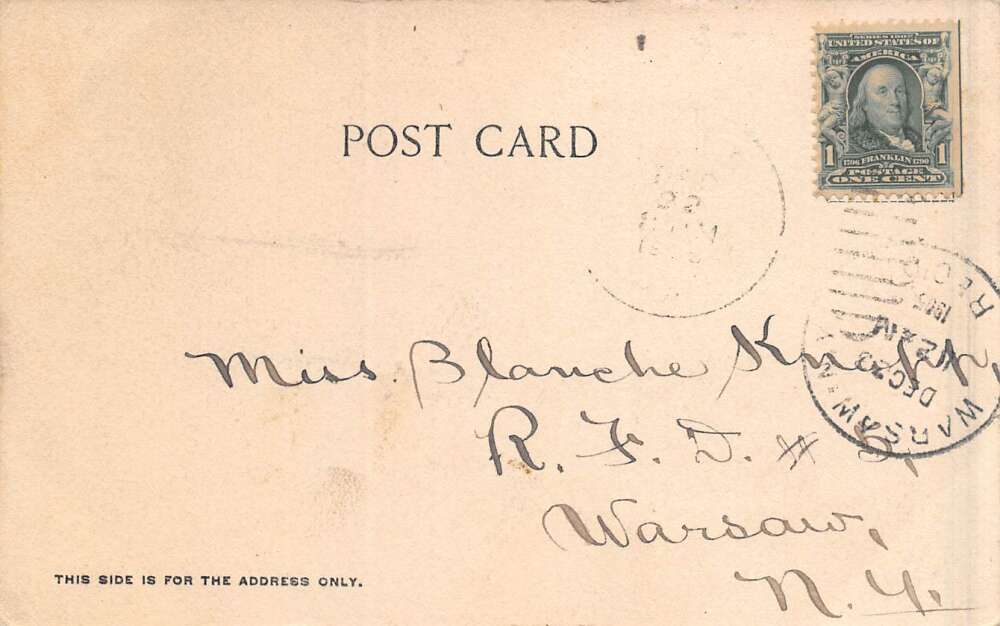 SERIES 1902
UNITED STATES OF
AMERICA
1 1706 FRANKLIN 1790 1
POSTAGE
ONE CENT
POST CARD
22
WARSAW
DEC
12 AM
REC'D
Miss Blanche Knight,
R. F. D. # 5,
Warsaw,
N. Y.
THIS SIDE IS FOR THE ADDRESS ONLY.